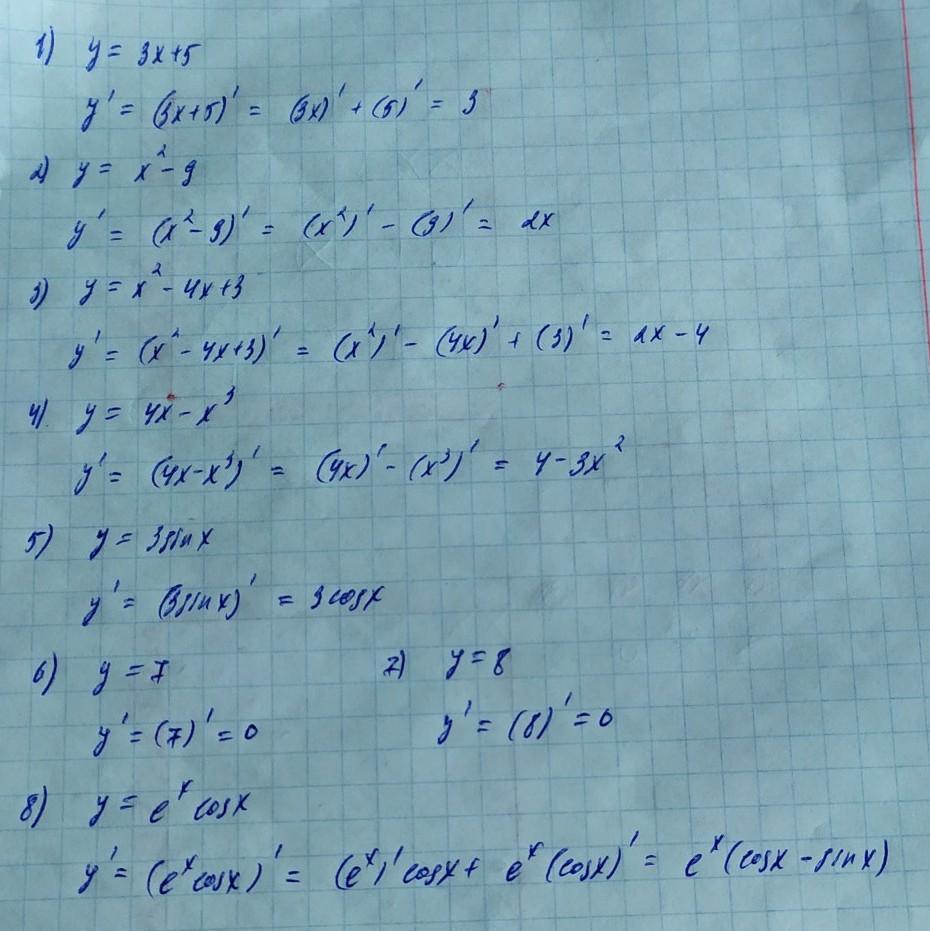 1) y = 3x+5
y' = (3x+5)' = (3x)' + (5)' = 3
2) y = x² - 9
y' = (x² - 9)' = (x²)' - (9)' = 2x
3) y = x² - 4x+3
y' = (x² - 4x+3)' = (x²)' - (4x)' + (3)' = 2x - 4
4) y = 4x - x³
y' = (4x-x³)' = (4x)' - (x³)' = 4 - 3x²
5) y = 3sinx
y' = (3sinx)' = 3cosx
6) y = 7 7) y = 8
y' = (7)' = 0 y' = (8)' = 0
8) y = eˣ cosx
y' = (eˣcosx)' = (eˣ)' cosx + eˣ (cosx)' = eˣ (cosx - sinx)